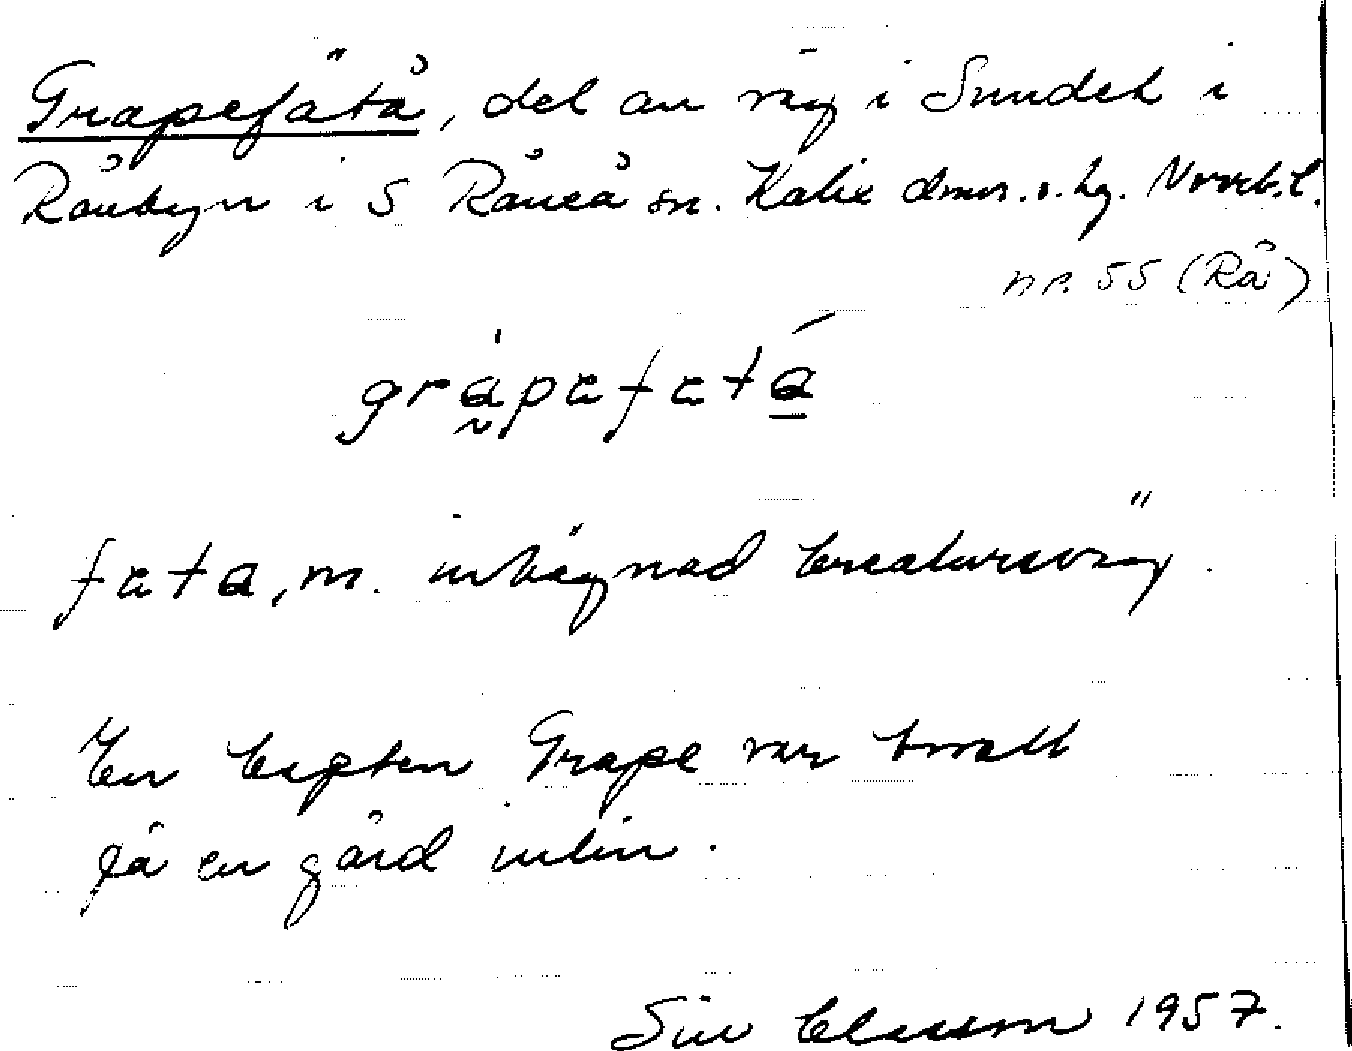 Grapefätå, del av väg i Sundet i
Rånbyn i S Råneå sn. Kalix dmv. o. hg. Norrb. l.
nr. 55 (Rå)
gràpefetá
feta, m. inhägnad kreatursväg.
En kapten Grape var bosatt
på en gård intill.
Siv 1957.